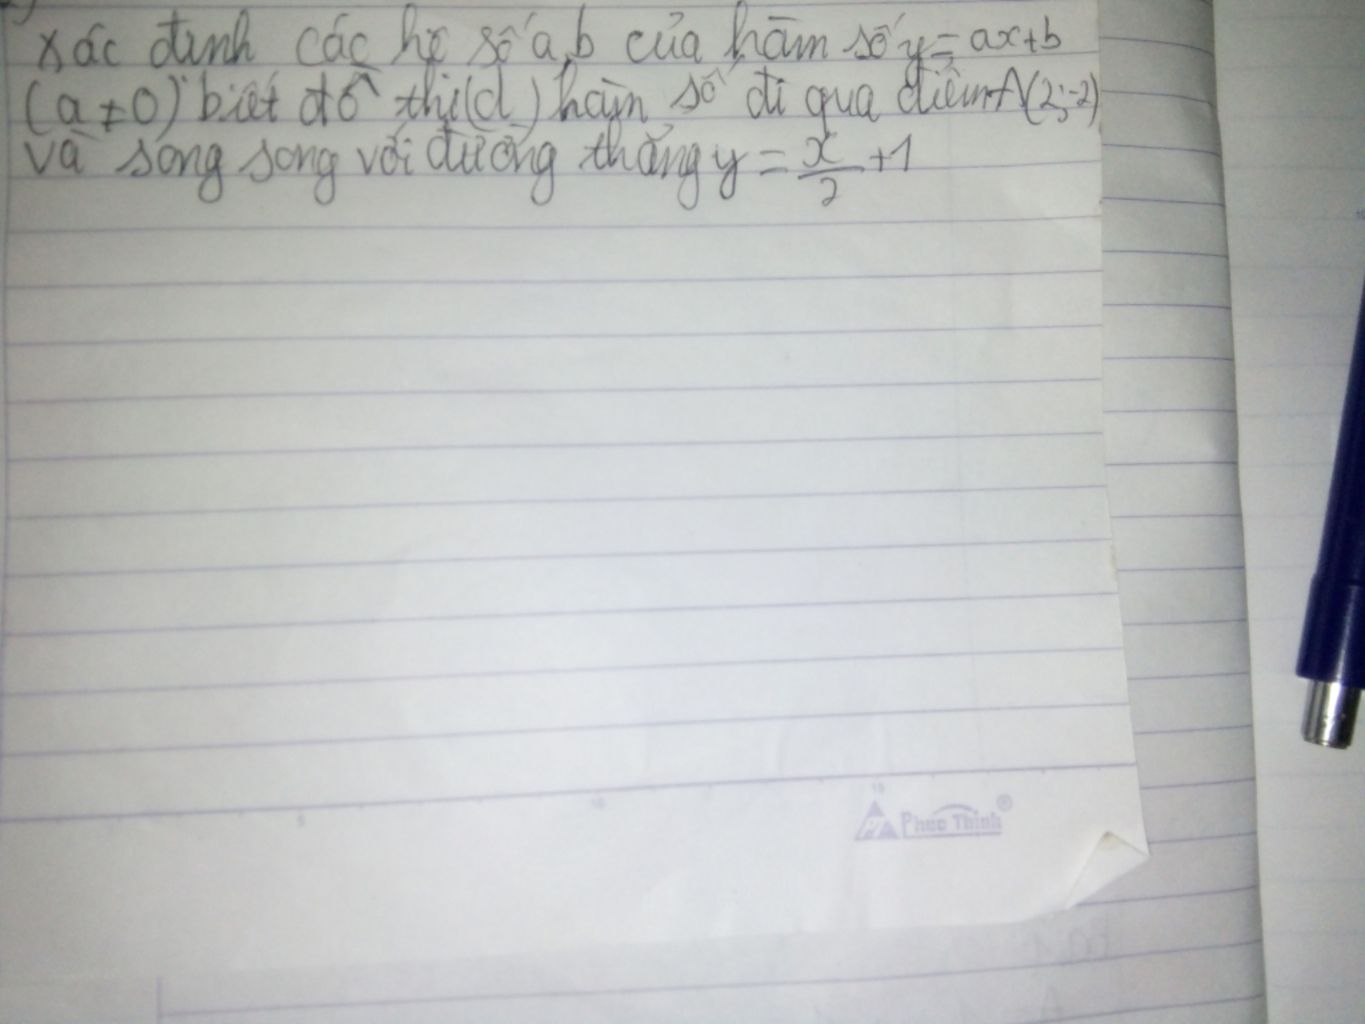 Xác định các hệ số a,b của hàm số y = ax+b
(a ≠ 0) biết đồ thị (d) hàm số đi qua điểm A(2;-2)
và song song với đường thẳng y = x/2 + 1
5
10
15
Phuc Thinh ®